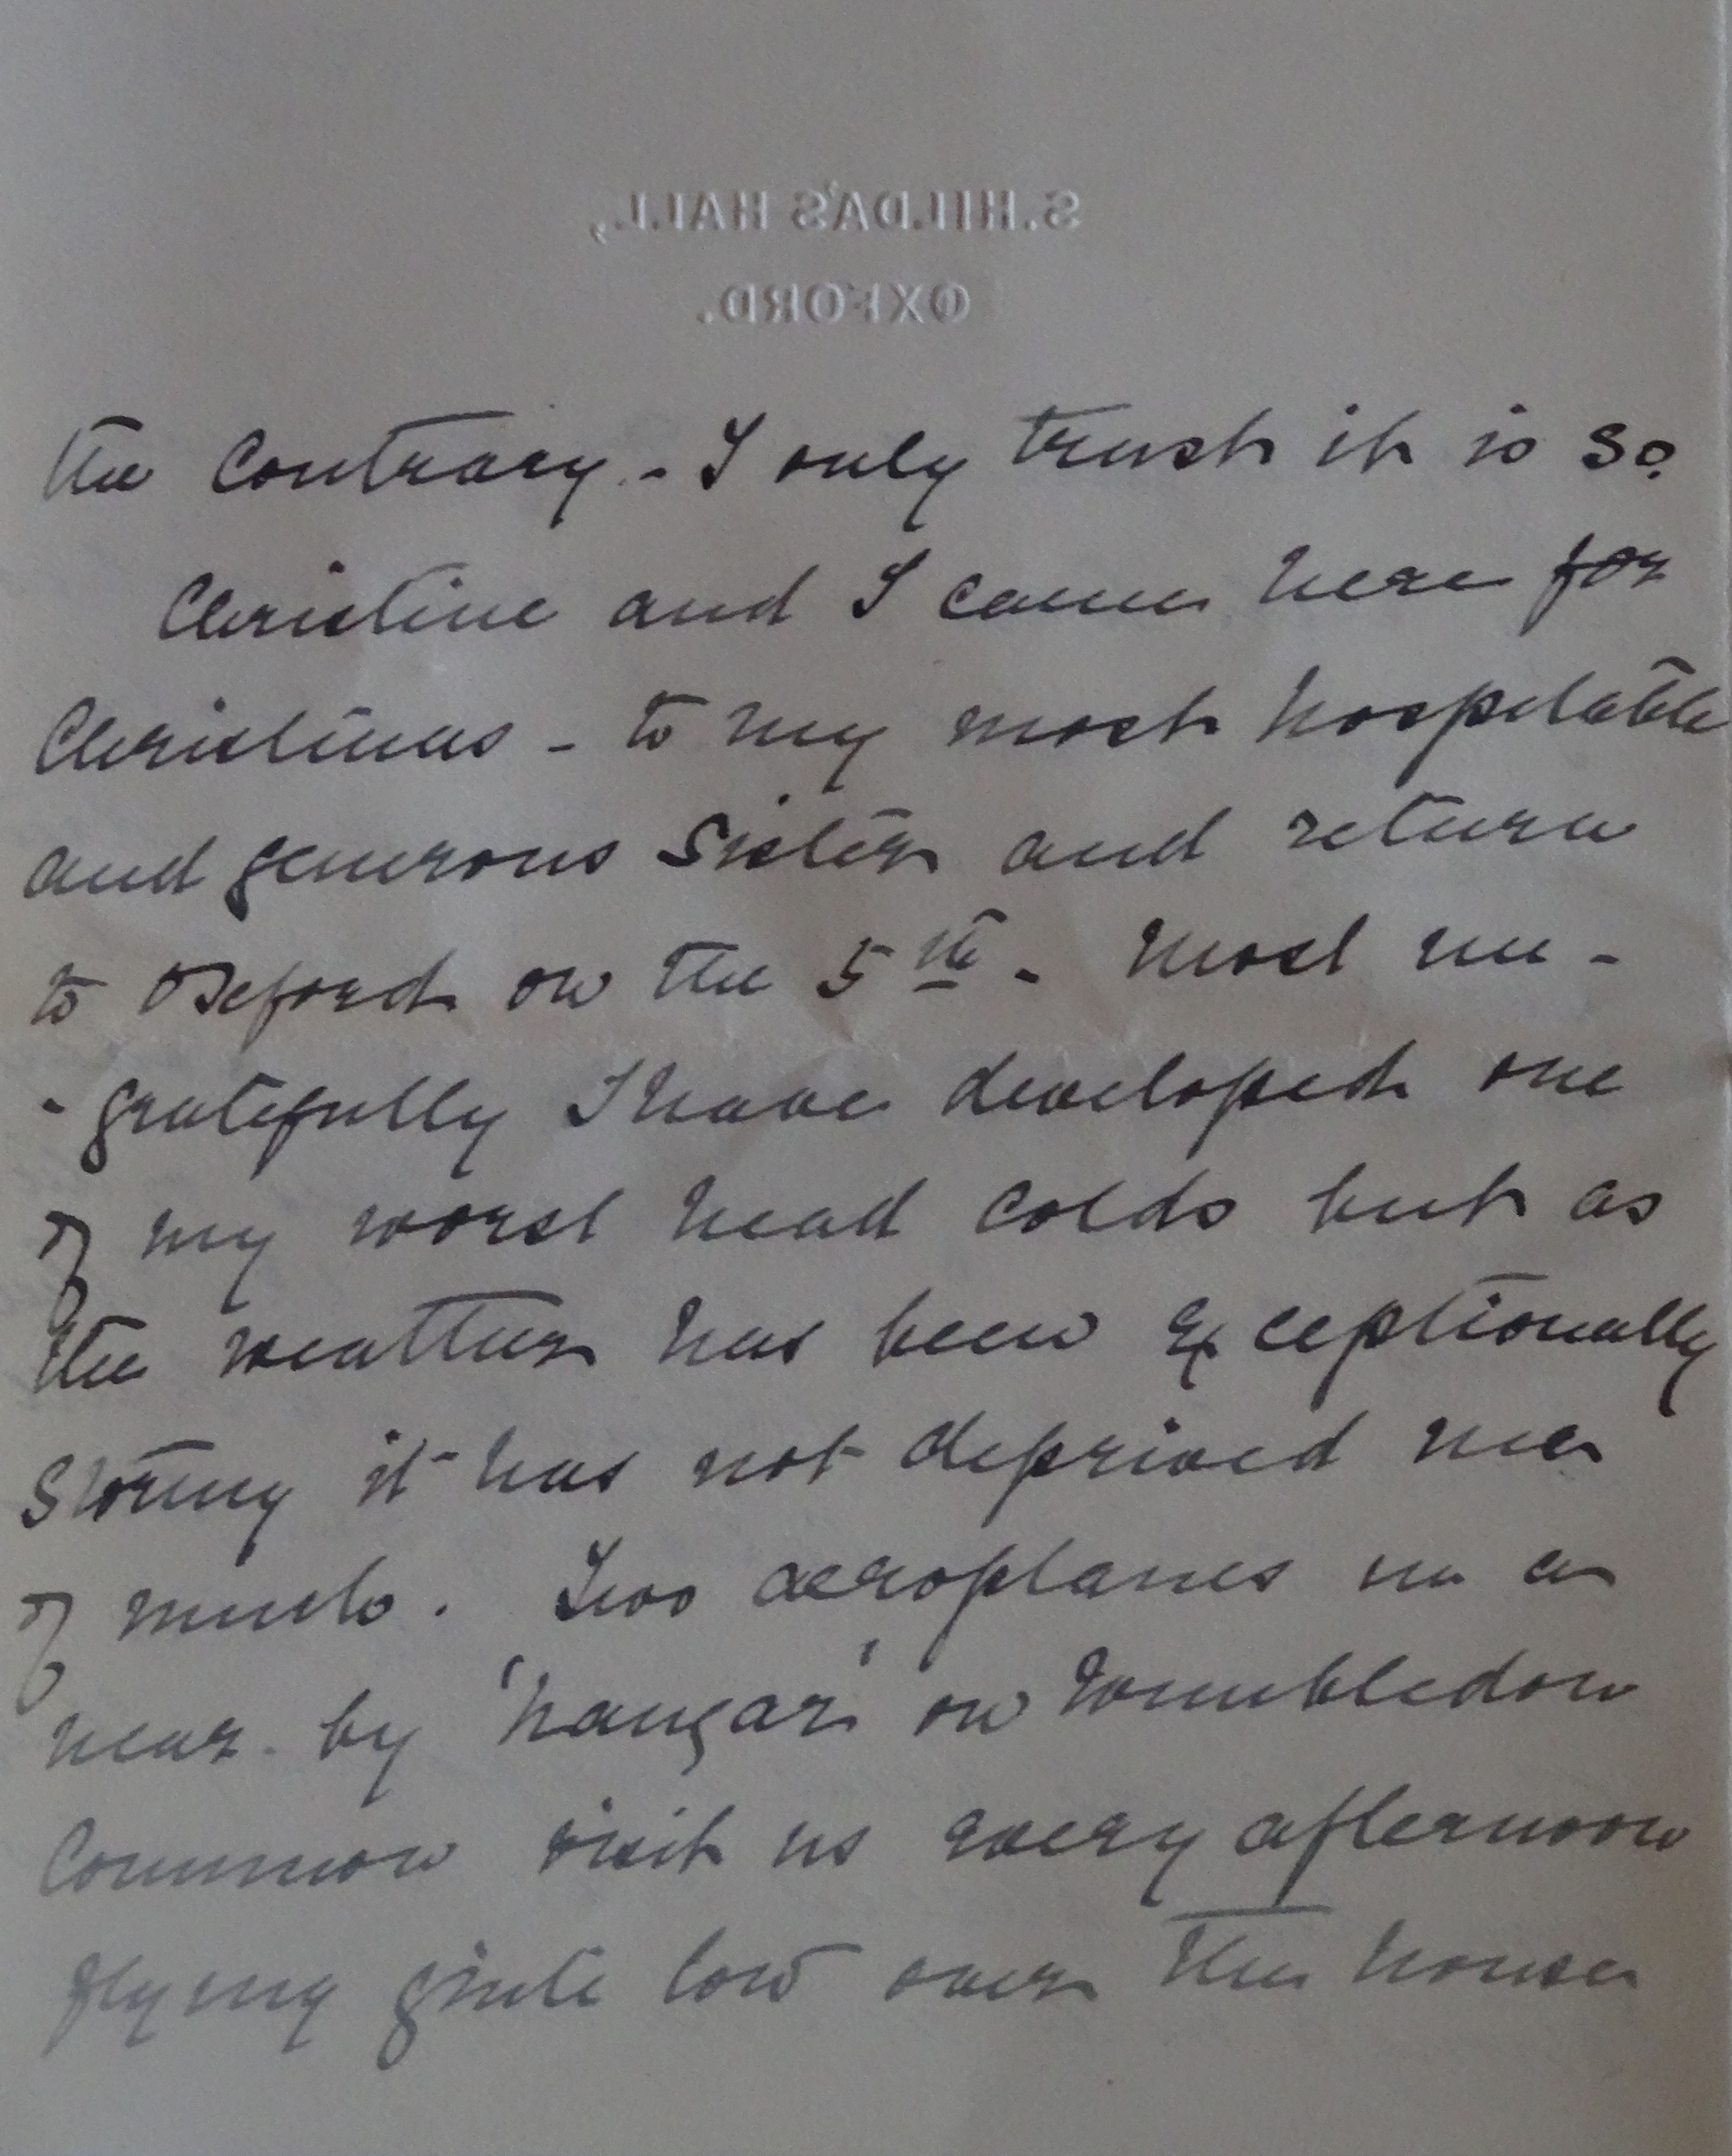 S. HILDA'S HALL,
OXFORD.
the contrary. - I only trust it is so.
Christine and I came here for
Christmas - to my most hospitable
and generous Sister and return
to Oxford on the 5th. Most un-
-gratefully I have developed one
of my worst head colds but as
the weather has been exceptionally
stormy it has not deprived me
of much. Two aeroplanes in a
near by 'hangar' on Wimbledon
Common visit us every afternoon
flying quite low over the house